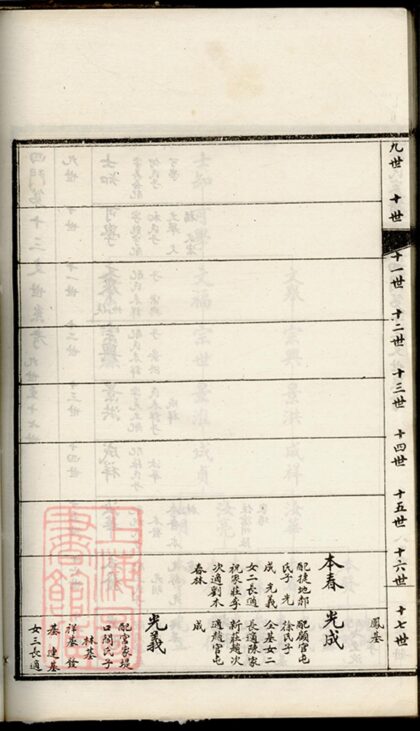 九世 十世 十一世 十二世 十三世 十四世 十五世 十六世 十七世
鳳基
本春
配徒地郭
氏子 光
成 光義
女二長適
祝家莊李
次適劉木
春林
光成
配顧官屯
徐氏子
全基女二
長適陳家
新莊趙次
適趙官屯
成
光義
配官家堤
口閻氏子
林基
祥基 餘
基 連基
女三長適
上海圖
書館藏